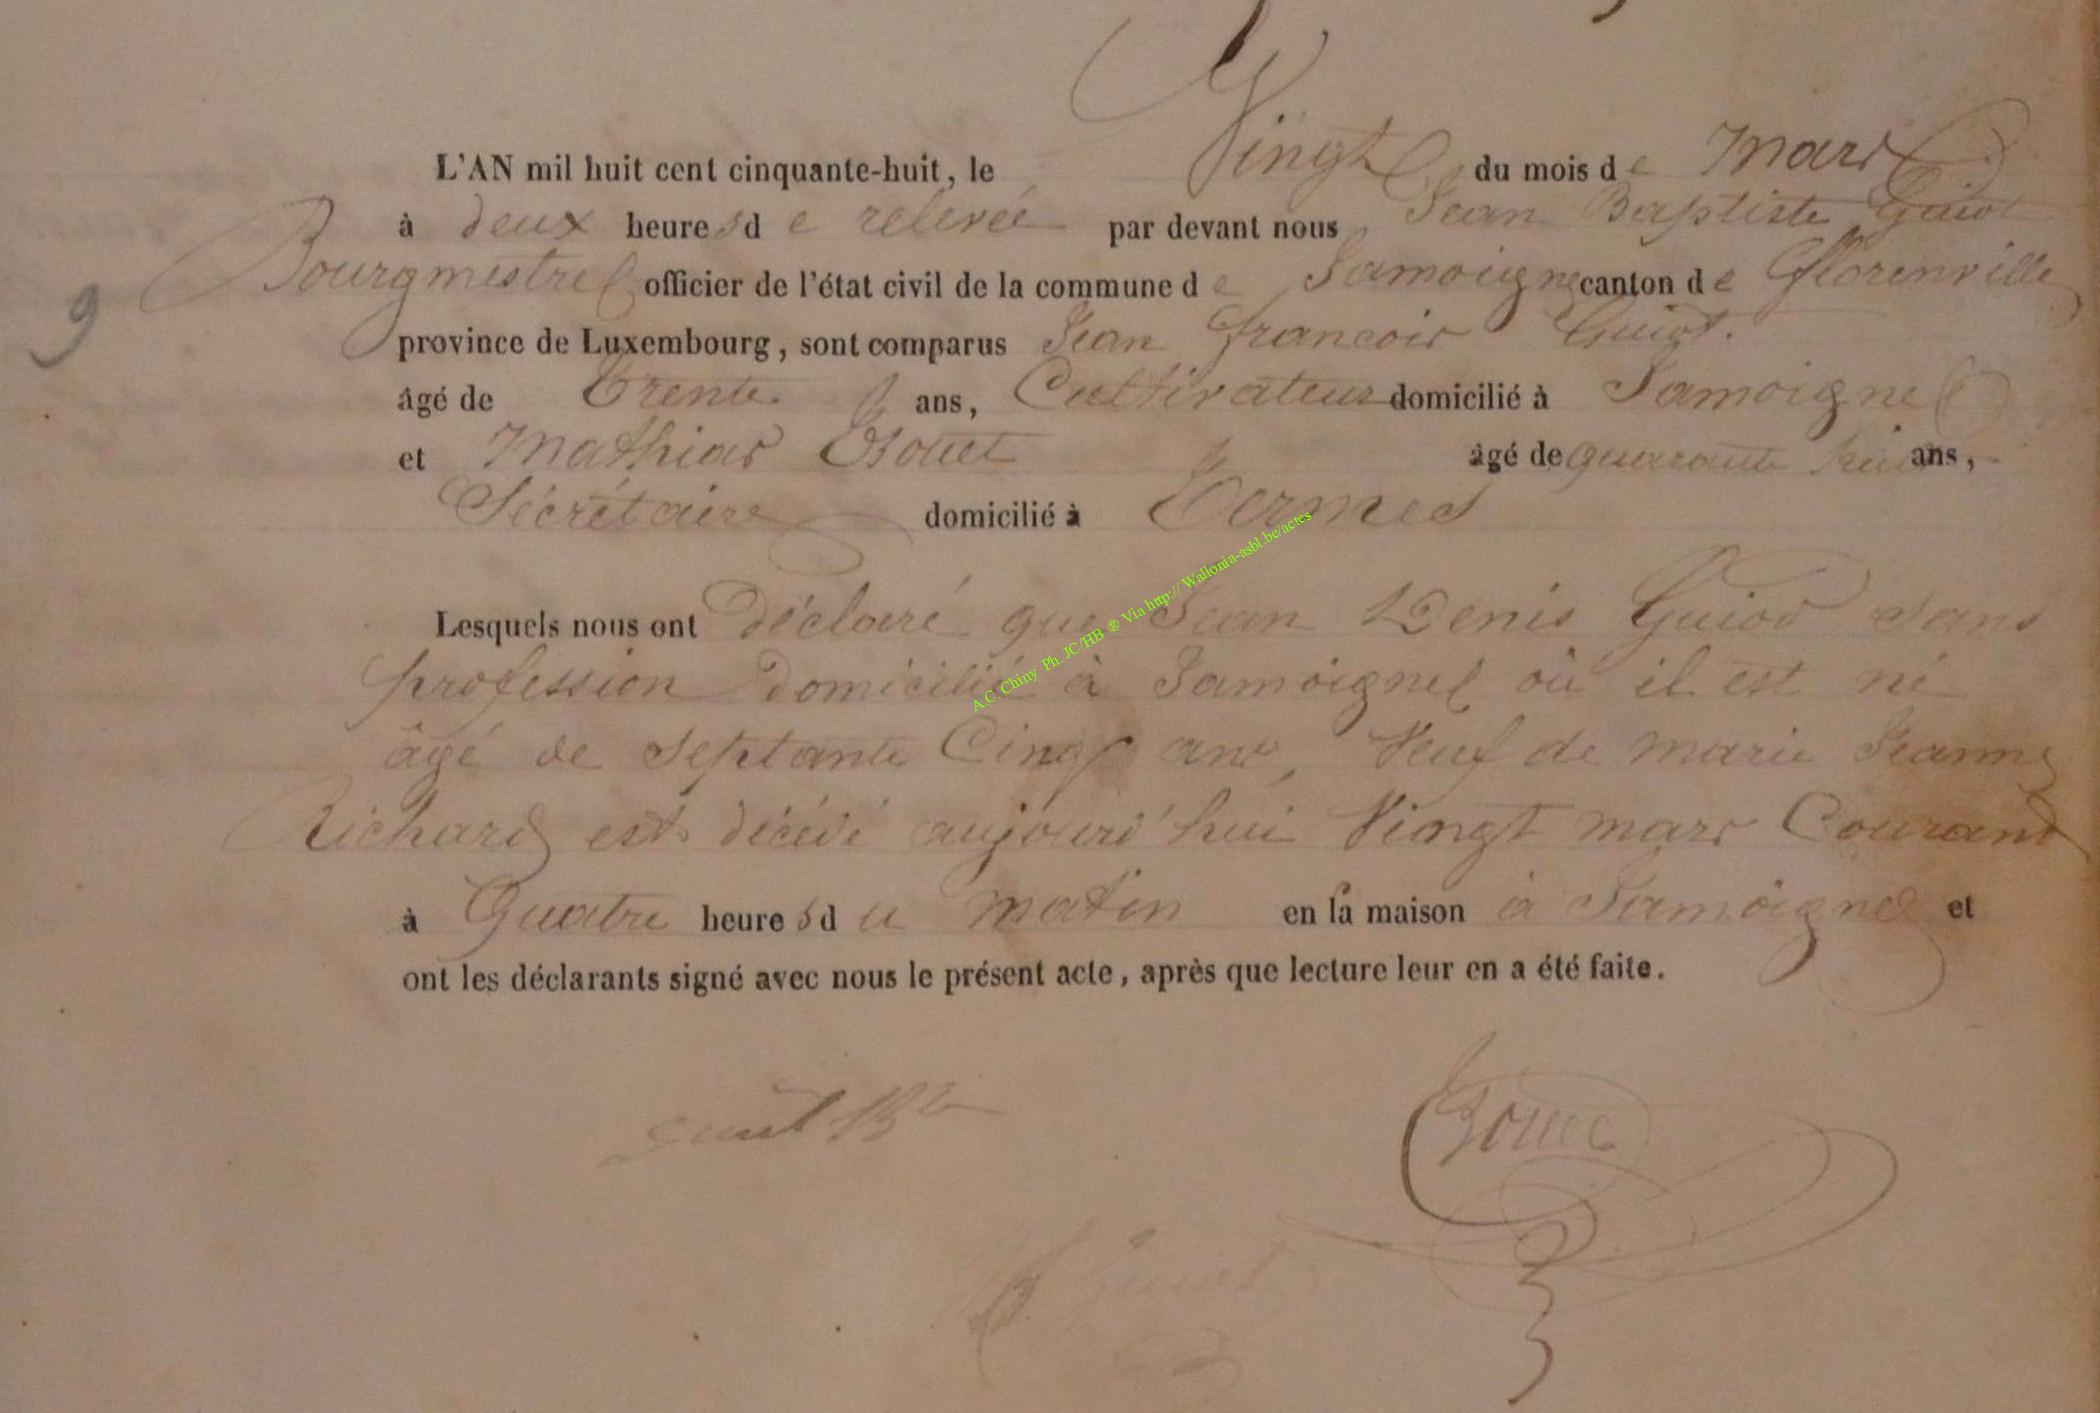 L'AN mil huit cent cinquante-huit, le Vingt du mois de Mars
à deux heures de relevée par devant nous Jean Baptiste Guiot
Bourgmestre officier de l'état civil de la commune de Jamoigne canton de Florenville
9
province de Luxembourg, sont comparus Jean François Guiot.
âgé de Trente ans, Cultivateur domicilié à Jamoigne
et Mathias Bouet âgé de quarante huit ans,
Sécrétaire domicilié à Termes
Lesquels nous ont Déclaré que Jean Denis Guiot sans
profession domicilié à Jamoigne où il est né
âgé de septante Cinq ans, Veuf de marie Jeanne
Richard est décédé aujourd'hui Vingt mars Courant
à Quatre heures du matin en la maison à Jamoigne et
ont les déclarants signé avec nous le présent acte, après que lecture leur en a été faite.
Bouet
A.C. Chiny Ph. JC/HB ® Via http:// Wallonia-asbl.be/actes